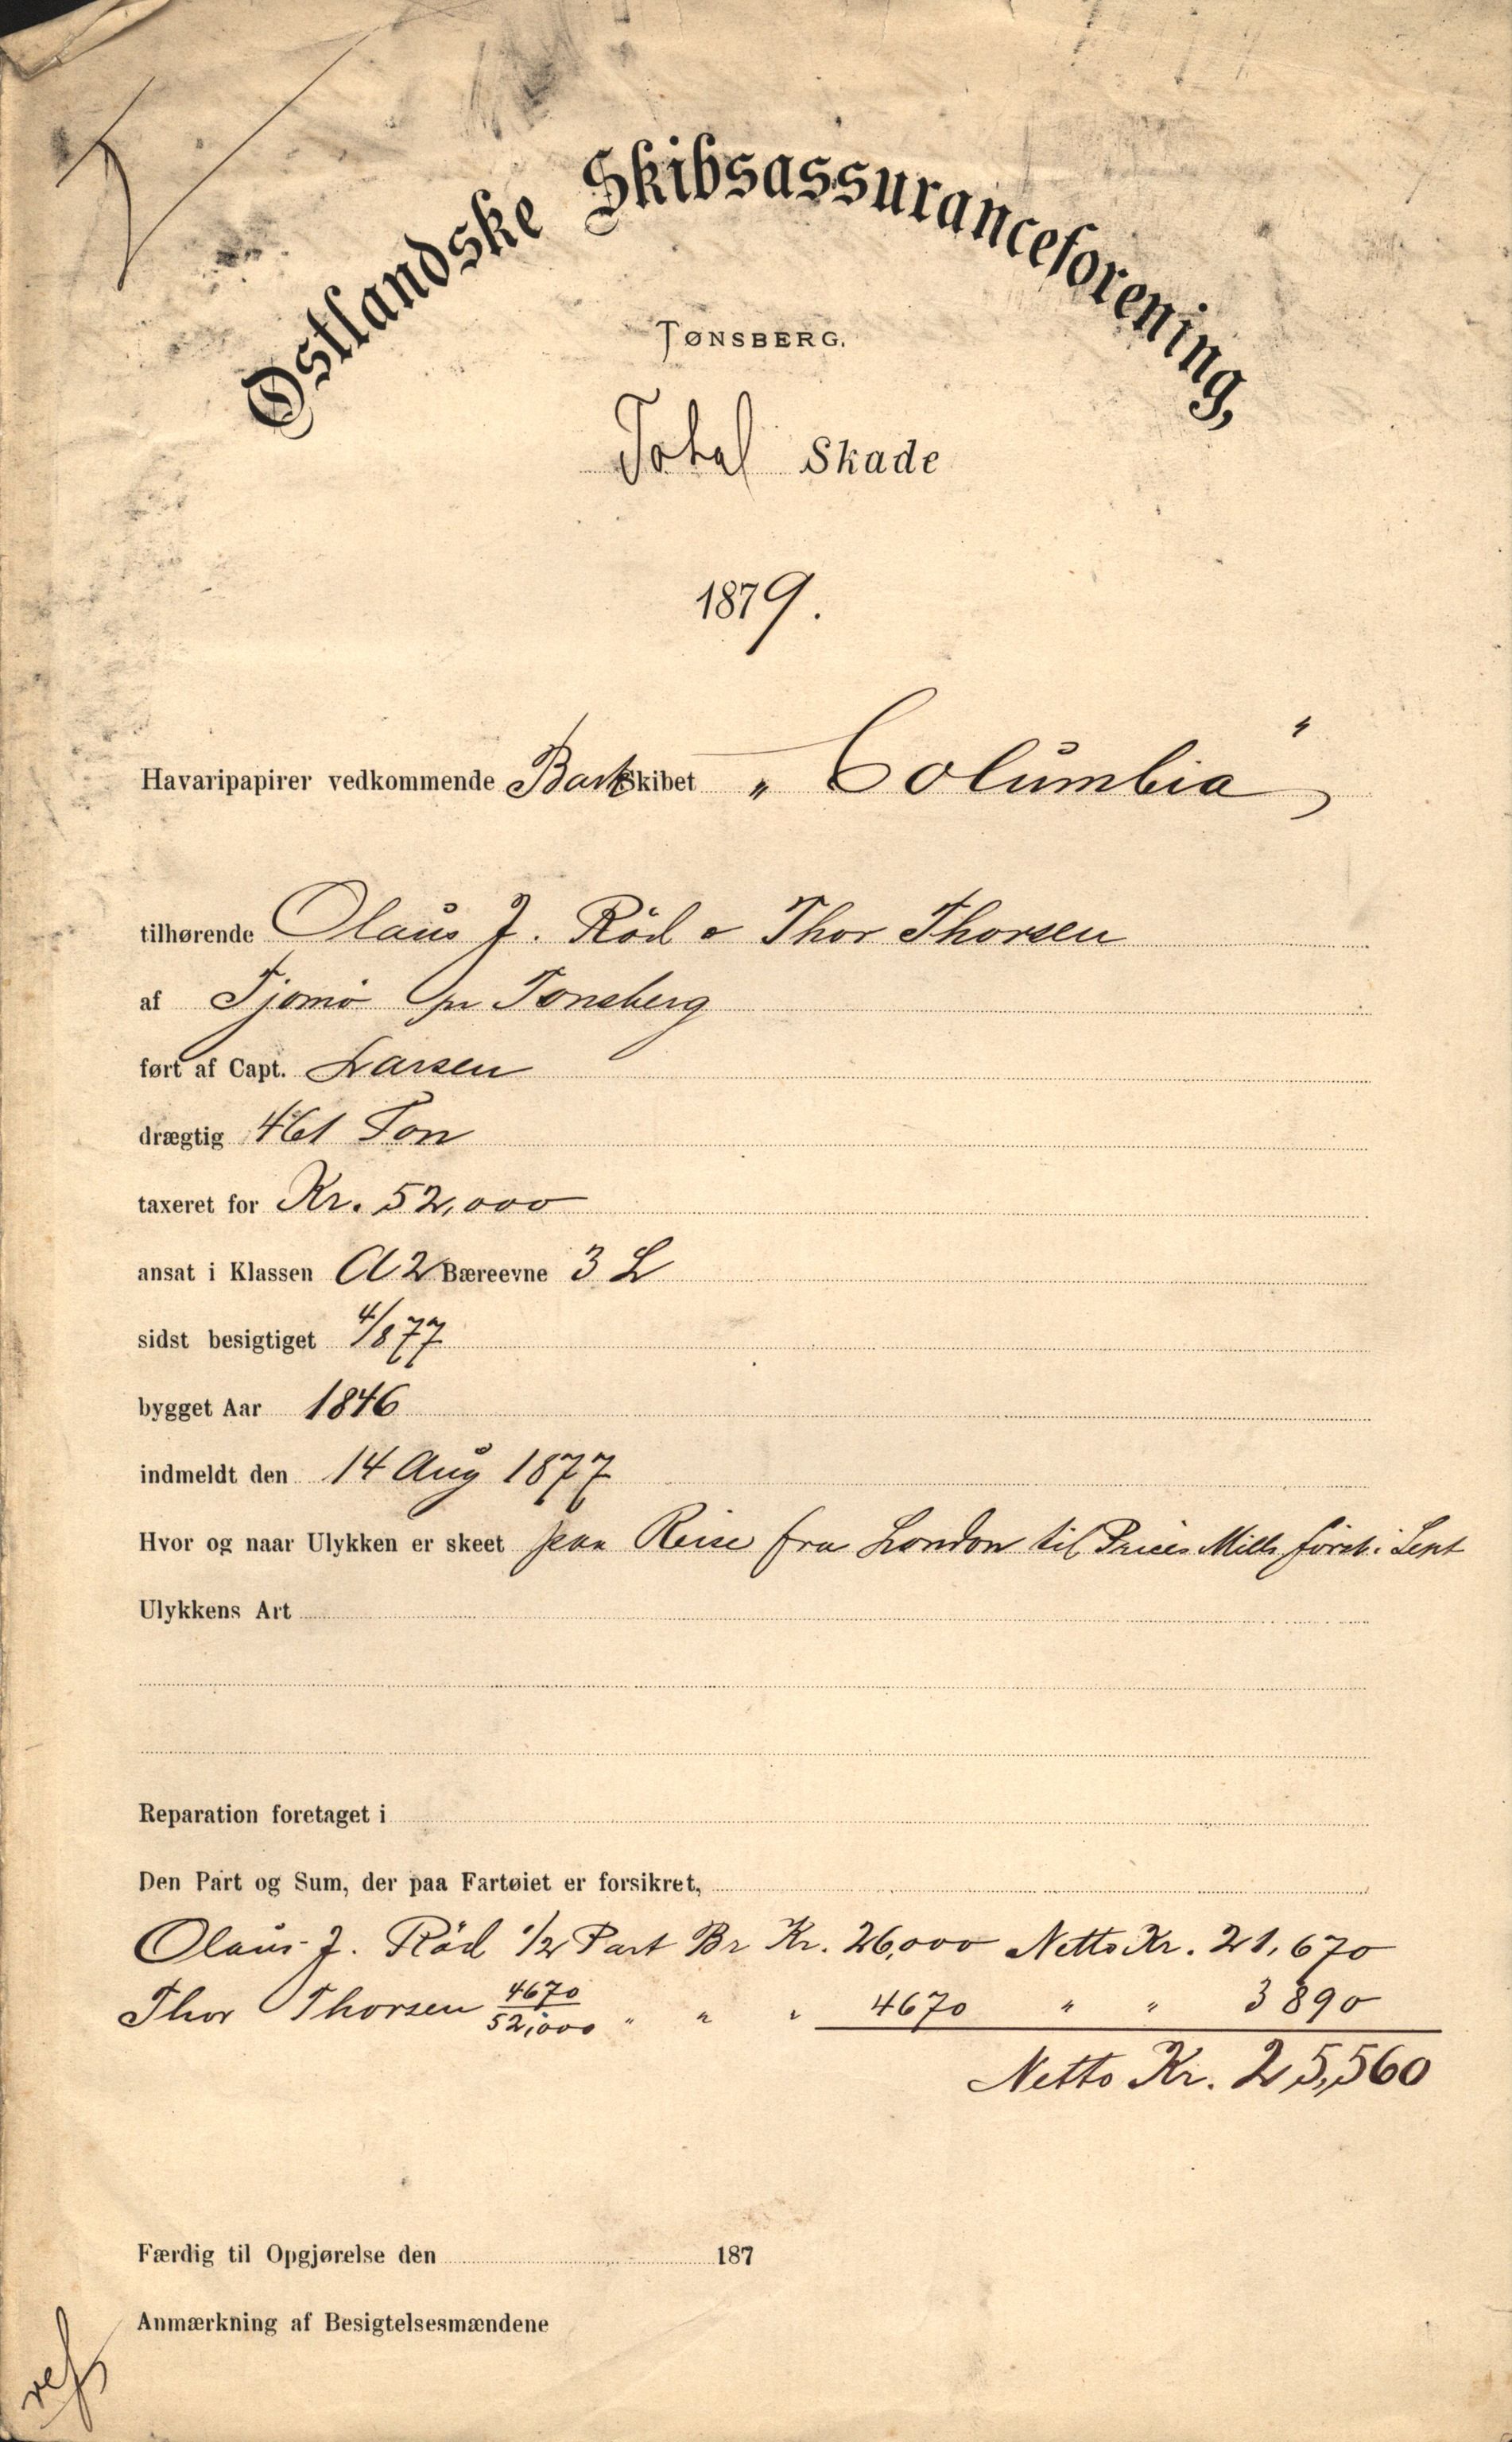 Østlandske Skibsassuranceforening,
TØNSBERG.
Total Skade
1879.
Havaripapirer vedkommende Bark Skibet „ Columbia "
tilhørende Olaus J. Röd & Thor Thorsen
af Tjømö pr Tønsberg
ført af Capt. Larsen
drægtig 461 Ton
taxeret for Kr. 52,000
ansat i Klassen A 2 Bæreevne 3 L
sidst besigtiget 4/8 77
bygget Aar 1846
indmeldt den 14 Aug 1877
Hvor og naar Ulykken er skeet paa Reise fra London til Prices Mills först i Sept
Ulykkens Art
Reparation foretaget i
Den Part og Sum, der paa Fartøiet er forsikret,
Olaus J. Röd 1/2 Part Br Kr. 26,000 Netto Kr. 21,670
Thor Thorsen 4670/52,000 " " " 4670 " " 3890
Netto Kr. 25,560
Færdig til Opgjørelse den 187
Anmærkning af Besigtelsesmændene